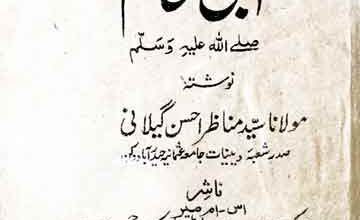 صلے اللہ علیہ وَسَلَّم
نوشتۂ
مولانا سیّد مناظر احسن گیلانی
صدر شعبۂ دینیات جامعہ عثمانیہ حیدرآباد دکن
ناشر